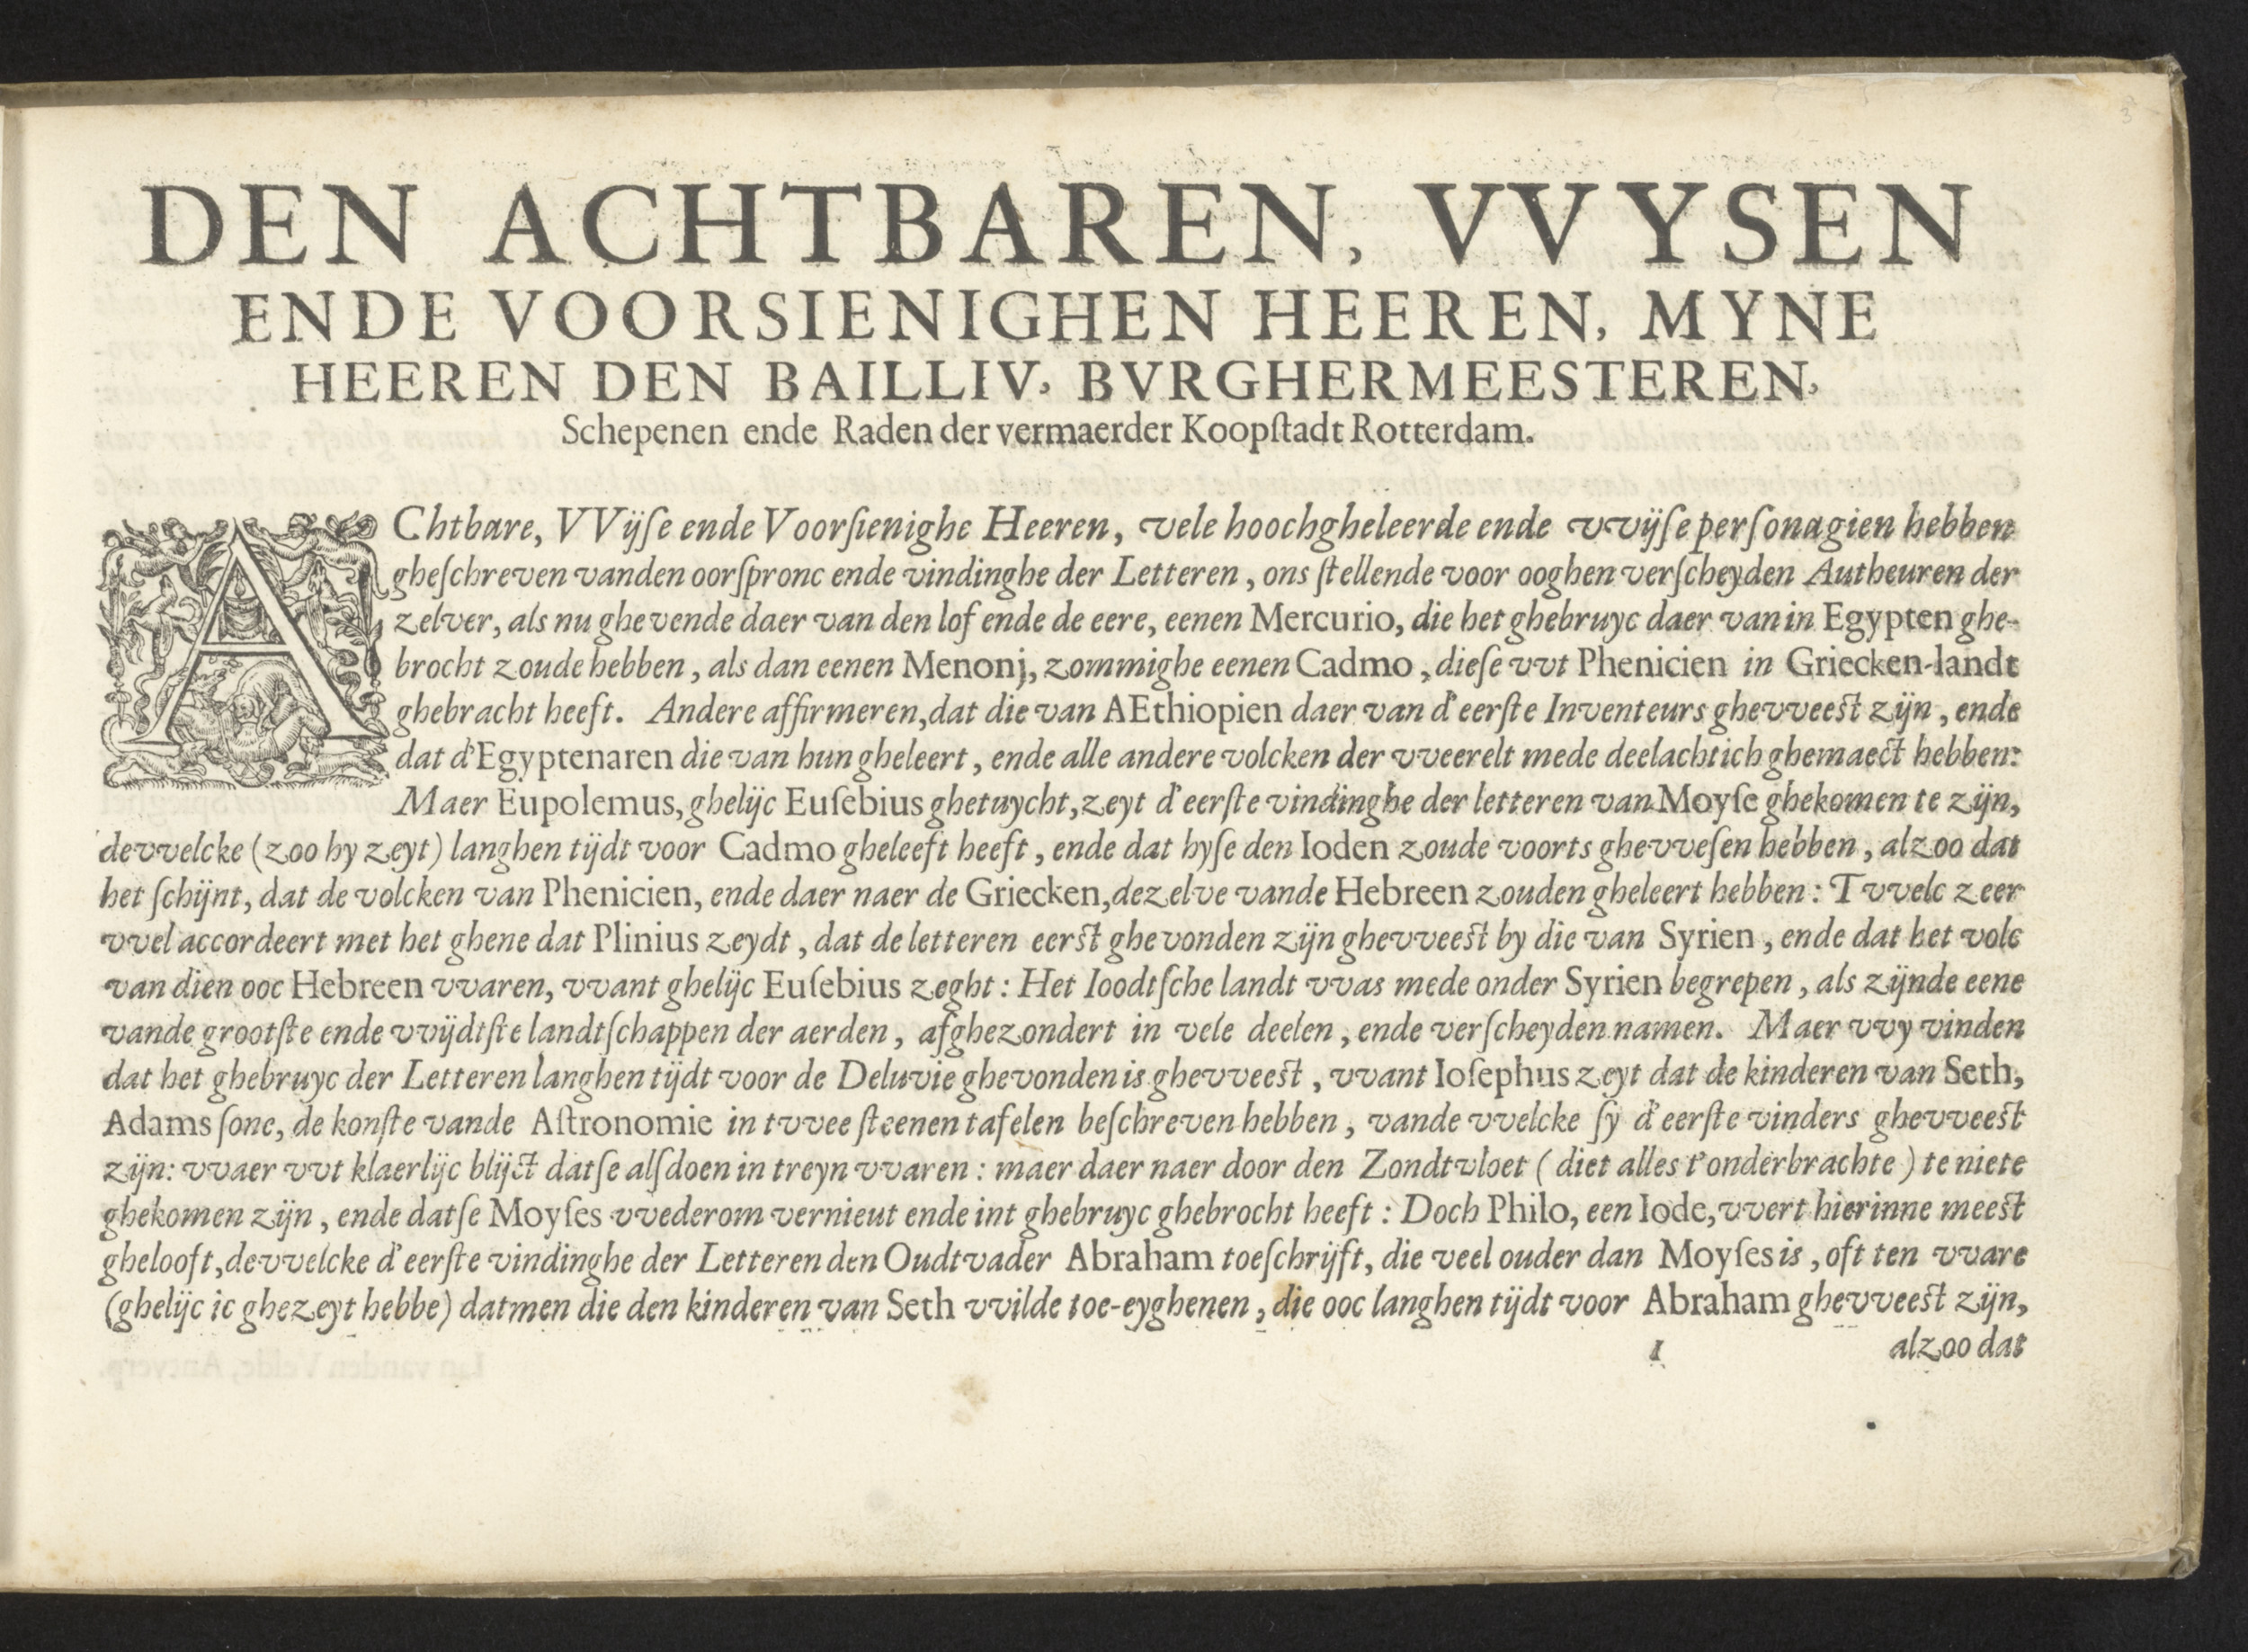 DEN ACHTBAREN, VVYSEN
ENDE VOORSIENIGHEN HEEREN, MYNE
HEEREN DEN BAILLIV, BVRGHERMEESTEREN,
Schepenen ende Raden der vermaerder Koopſtadt Rotterdam.
AChtbare, VVijſe ende Voorſienighe Heeren, vele hoochgheleerde ende vvijſe perſonagien hebben
gheſchreven vanden oorſpronc ende vindinghe der Letteren, ons ſtellende voor ooghen verſcheyden Autheuren der
zelver, als nu ghevende daer van den lof ende de eere, eenen Mercurio, die het ghebruyc daer van in Egypten ghe-
brocht zoude hebben, als dan eenen Menonj, zommighe eenen Cadmo, dieſe vvt Phenicien in Griecken-landt
ghebracht heeft. Andere affirmeren, dat die van AEthiopien daer van d'eerſte Inventeurs ghevveeſt zijn, ende
dat d'Egyptenaren die van hun gheleert, ende alle andere volcken der vveerelt mede deelachtich ghemaect hebben:
Maer Eupolemus, ghelijc Euſebius ghetuycht, zeyt d'eerſte vindinghe der letteren van Moyſe ghekomen te zijn,
devvelcke (zoo hy zeyt) langhen tijdt voor Cadmo gheleeft heeft, ende dat hyſe den Ioden zoude voorts ghevveſen hebben, alzoo dat
het ſchijnt, dat de volcken van Phenicien, ende daer naer de Griecken, dezelve vande Hebreen zouden gheleert hebben: Tvvelc zeer
vvel accordeert met het ghene dat Plinius zeydt, dat de letteren eerſt ghevonden zijn ghevveeſt by die van Syrien, ende dat het volc
van dien ooc Hebreen vvaren, vvant ghelijc Euſebius zeght: Het Ioodtſche landt vvas mede onder Syrien begrepen, als zijnde eene
vande grootſte ende vvijdtſte landtſchappen der aerden, afghezondert in vele deelen, ende verſcheyden namen. Maer vvy vinden
dat het ghebruyc der Letteren langhen tijdt voor de Deluvie ghevonden is ghevveeſt, vvant Ioſephus zeyt dat de kinderen van Seth,
Adams ſone, de konſte vande Aſtronomie in tvvee ſteenen tafelen beſchreven hebben, vande vvelcke ſy d'eerſte vinders ghevveeſt
zijn: vvaer vvt klaerlijc blijct datſe alſdoen in treyn vvaren: maer daer naer door den Zondtvloet (diet alles t'onderbrachte) te niete
ghekomen zijn, ende datſe Moyſes vvederom vernieut ende int ghebruyc ghebrocht heeft: Doch Philo, een Iode, vvert hierinne meeſt
ghelooft, devvelcke d'eerſte vindinghe der Letteren den Oudtvader Abraham toeſchrijft, die veel ouder dan Moyſes is, oft ten vvare
(ghelijc ic ghezeyt hebbe) datmen die den kinderen van Seth vvilde toe-eyghenen, die ooc langhen tijdt voor Abraham ghevveeſt zijn,
1 alzoo dat
3